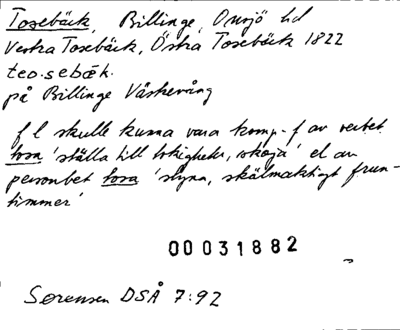 Tosebäck, Billinge, Onsjö hd
Vestra Tosebäck, Östra Tosebäck 1822
teo.sebæk.
på Billinge Västervång
f l skulle kunna vara komp.-f av verbet
tosa 'ställa till tokigheter, skoja' el av
personbet tosa 'slyna, skälmaktigt frun-
timmer'
00031882
Sørensen DSÅ 7:92